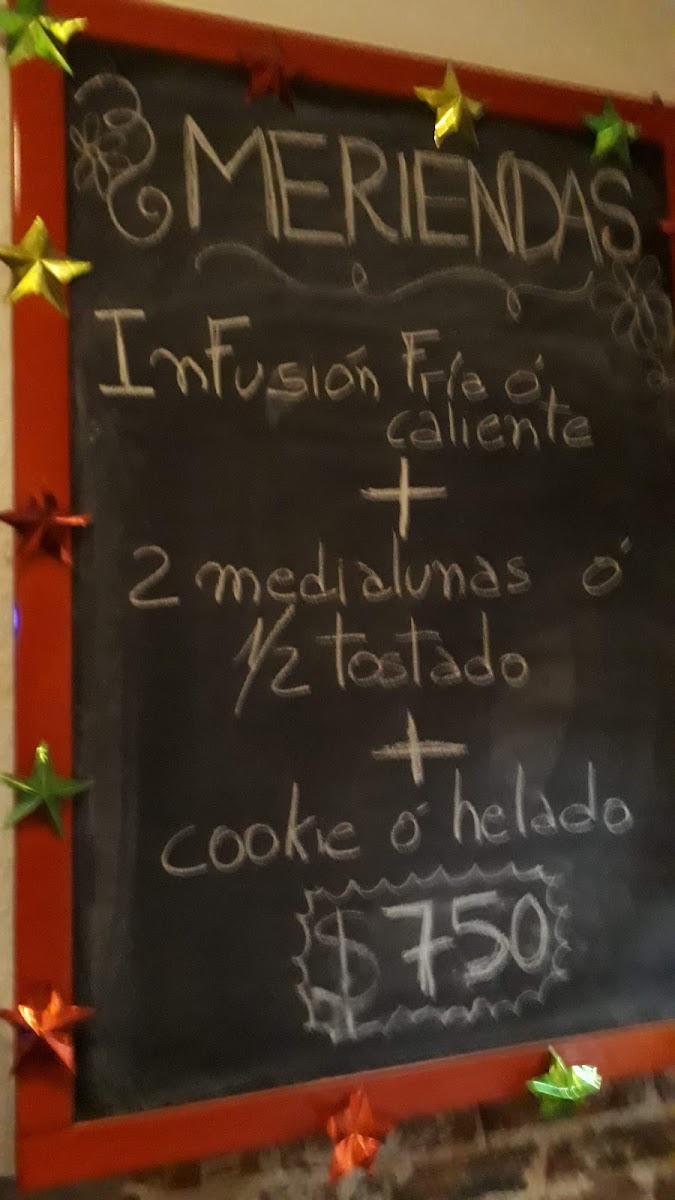 MERIENDAS
InFusión Fría ó
caliente
+
2 medialunas ó
1/2 tostado
+
cookie ó helado
$750